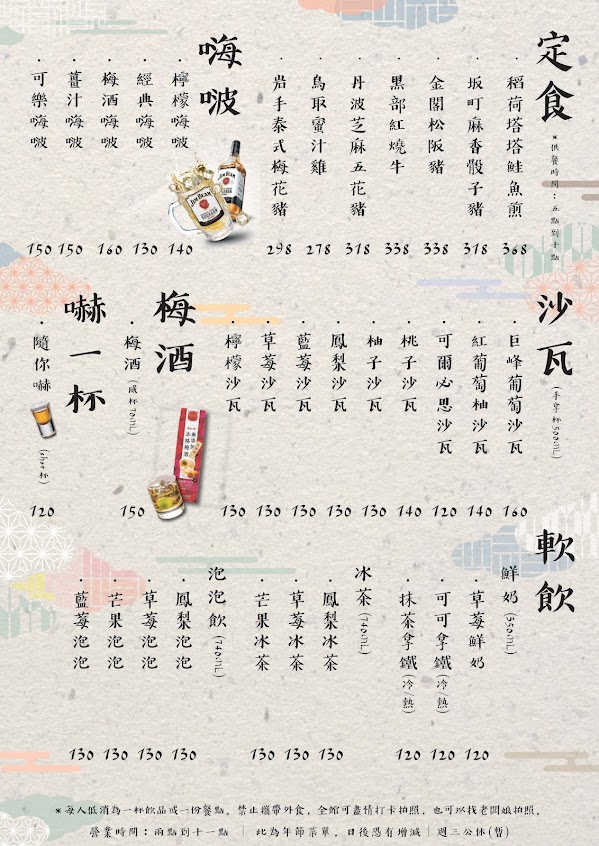 定食
*供餐時間：五點到十點
·稻荷塔塔鮭魚煎 368
·坂町麻香骰子豬 318
·金閣松阪豬 338
·黑部紅燒牛 338
·丹波芝麻五花豬 318
·鳥取蜜汁雞 278
·岩手泰式梅花豬 298
嗨啵
·檸檬嗨啵 140
·經典嗨啵 130
·梅酒嗨啵 160
·薑汁嗨啵 150
·可樂嗨啵 150
JIM BEAM
JIM BEAM
沙瓦
(手拿杯500mL)
·巨峰葡萄沙瓦 160
·紅葡萄柚沙瓦 140
·可爾必思沙瓦 120
·桃子沙瓦 140
·柚子沙瓦 130
·鳳梨沙瓦 130
·藍莓沙瓦 130
·草莓沙瓦 130
·檸檬沙瓦 130
梅酒
·梅酒(威杯70mL) 150
嚇一杯
·隨你嚇(shot杯) 120
軟飲
鮮奶(550mL)
·草莓鮮奶 120
·可可拿鐵(冷/熱) 120
·抹茶拿鐵(冷/熱) 120
冰茶(740mL)
·鳳梨冰茶 130
·草莓冰茶 130
·芒果冰茶 130
泡泡飲(740mL)
·鳳梨泡泡 130
·草莓泡泡 130
·芒果泡泡 130
·藍莓泡泡 130
*每人低消為一杯飲品或一份餐點，禁止攜帶外食，全館可盡情打卡拍照，也可以找老闆娘拍照。
營業時間：兩點到十一點 | 此為年節菜單，日後恐有增減 | 週三公休(暫)